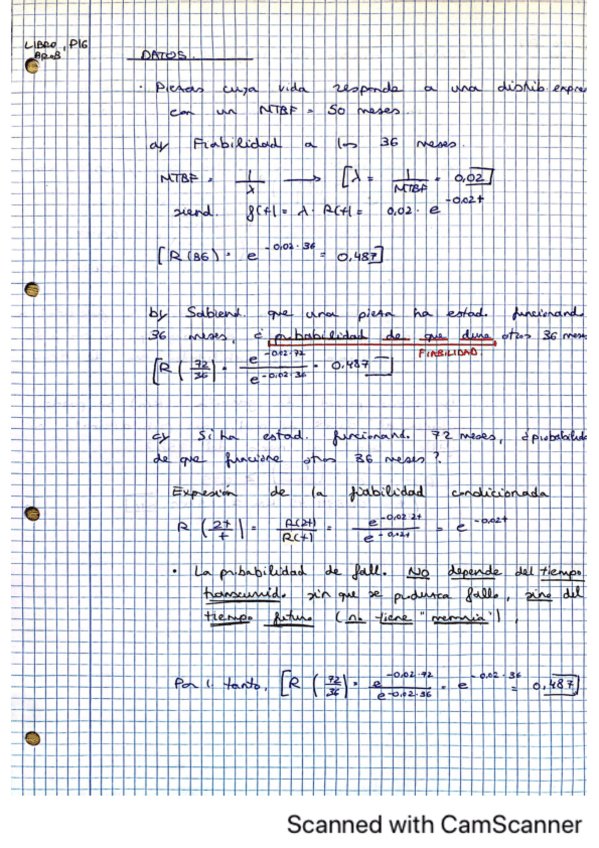 LIBRO, P16
APD.B
DATOS.
· Piezas cuya vida responde a una distrib. expne
con un MTBF = 50 meses.
a) Fiabilidad a los 36 meses.
MTBF = 1/λ → [λ = 1/MTBF = 0,02]
siend. f(t) = λ · R(t) = 0,02 · e^-0,02t
[R(36) = e^-0,02·36 = 0,487]
b) Sabiend. que una pieza ha estad. funcionand.
36 meses, ¿ probabilidad de que dure otros 36 mese
FIABILIDAD
[R(72/36) = e^-0,02·72 / e^-0,02·36 = 0,487]
c) Si ha estad. funcionand. 72 meses, ¿probabilida
de que funcione otros 36 meses?
Expresión de la fiabilidad condicionada
R(2t/t) = R(2t)/R(t) = e^-0,02·2t / e^-0,02t = e^-0,02t
· La probabilidad de fall. NO depende del tiempo
transcurrid. sin que se produzca fallo, sino del
tiempo futuro (no tiene "memoria").
Por l. tanto, [R(72/36) = e^-0,02·72 / e^-0,02·36 = e^-0,02·36 = 0,487]
Scanned with CamScanner